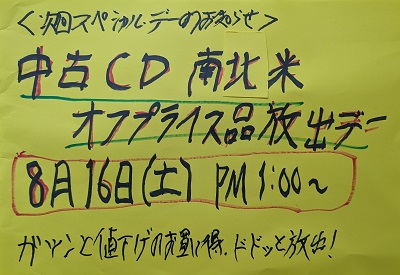 <次回スペシャル・デーのお知らせ>
中古CD 南北米
オフプライス品放出デー
8月16日(土) PM 1:00～
ガツンと値下げのお買い得、ドドッと放出!